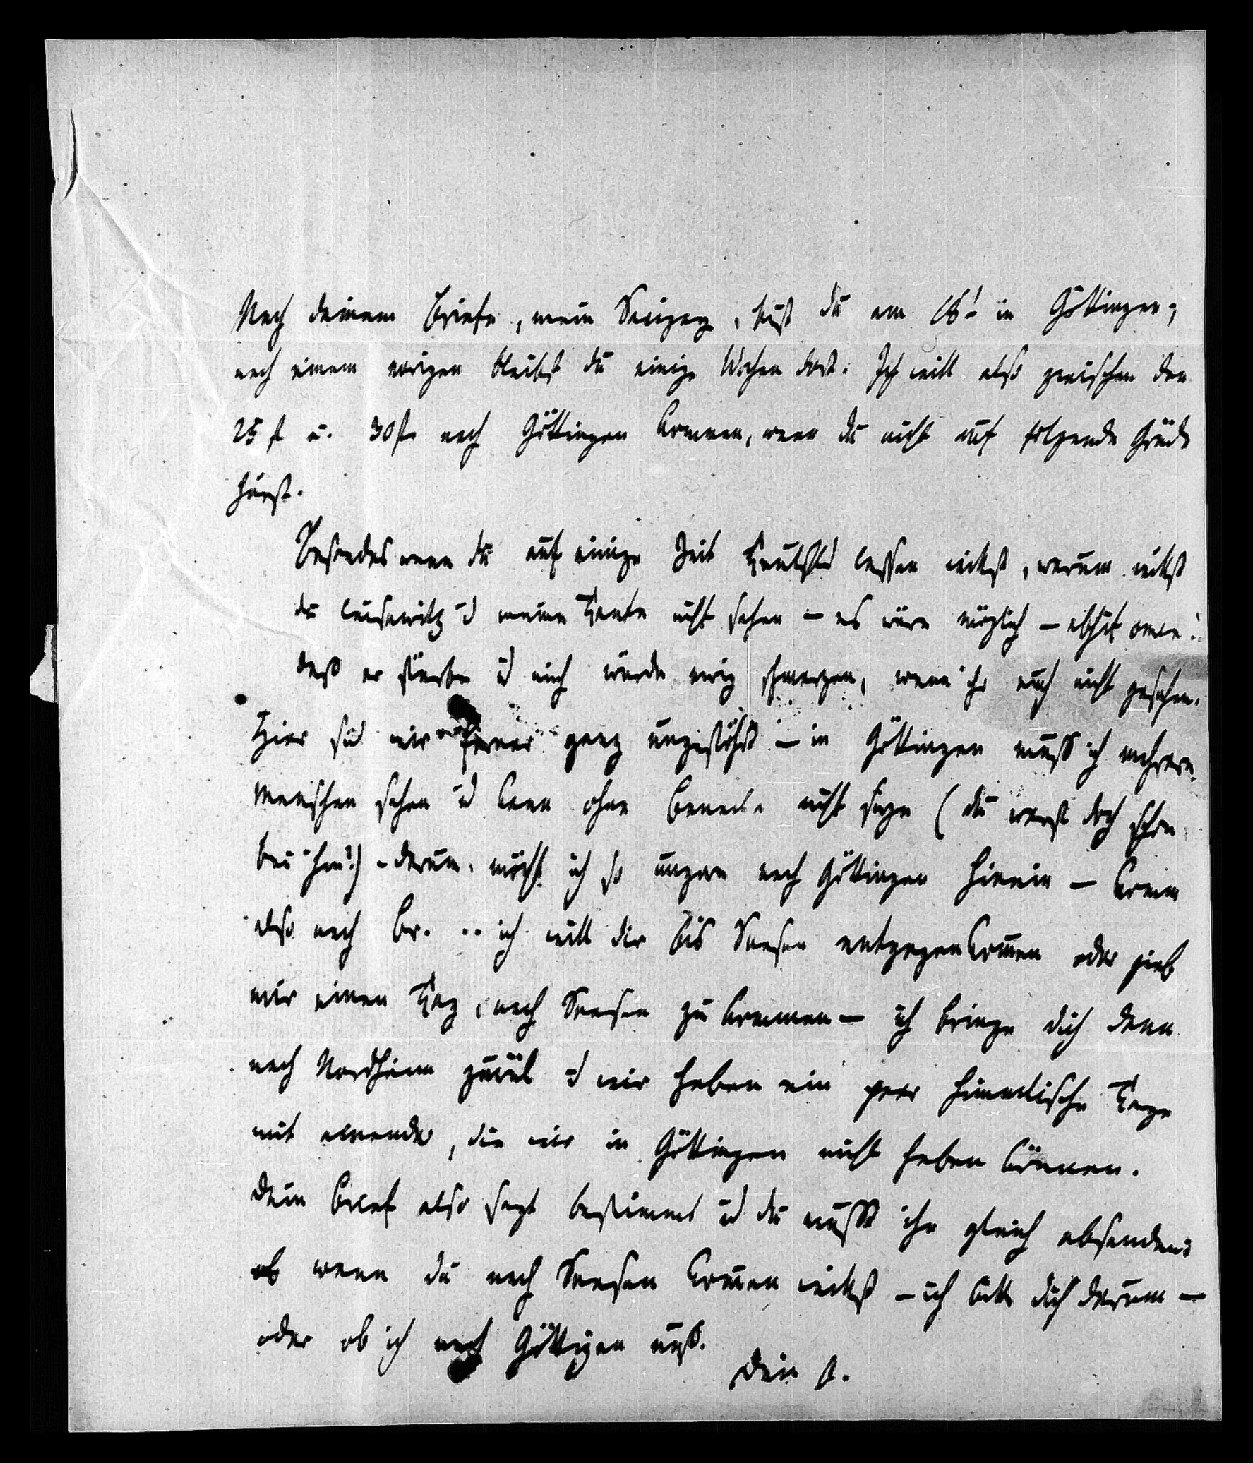 Nach deinem Briefe, mein Einziger, bist du am 16t in Göttingen;
nach einem vorigen bleibst du einige Wochen dort. Ich will also zwischen den
25st u. 30st nach Göttingen kommen, wenn du nicht auf folgende Gründe
hörst.
Besonders wenn du auf einige Zeit Teutschld lassen willst, warum willst
du Leisewitz u meine Tante nicht sehen – es wäre möglich – absit omen
daß er stürbe u mich würde ewig schmerzen, wenn ihr euch nicht gesehen.
Hier sind wir ferner ganz ungestöhrt – in Göttingen muß ich mehrere
Menschen sehen u kann ohne nicht seyn (du warst doch schon
bei ihm?) – darum möcht ich so ungern nach Göttingen hinein – Komm
also nach Br. .. ich will dir bis Seesen entgegenkommen oder gieb
mir einen Tag, nach Seesen zu kommen – ich bringe dich dann
nach Nordheim zurük u wir haben ein paar himmlische Tage
mit einander, die wir in Göttingen nicht haben können.
Dein Brief also sagt bestimmt u du mußt ihn gleich absenden:
ob wenn du nach Seesen kommen willst – ich bitte dich darum –
oder ob ich nach Göttigen muß.
Dein